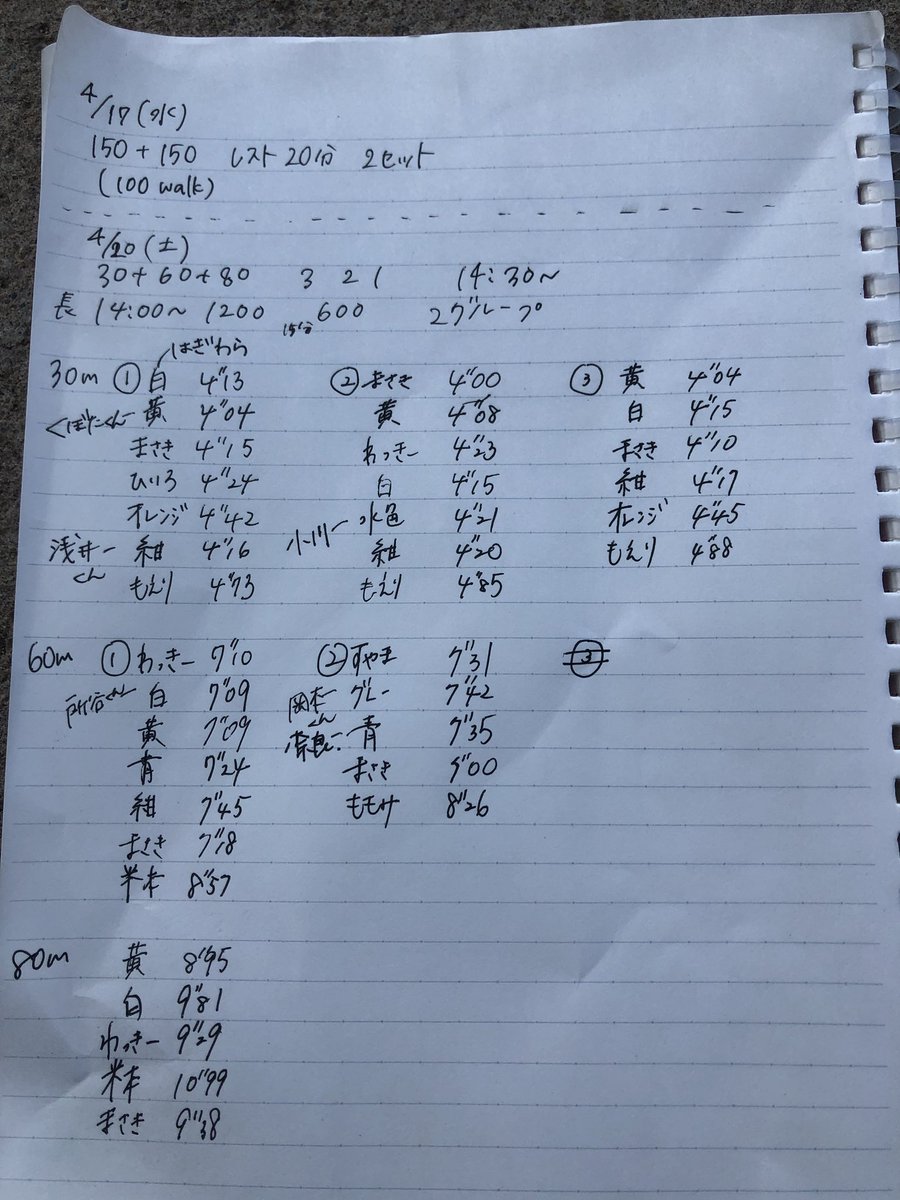 4/17(水)
150+150 レスト20分 2セット
(100 walk)
4/20(土)
30+60+80 3 2 1 14:30~
長 14:00~ 1200 15分 600 2グループ
はぎわら
30m ① 白 4"13 ② まさき 4"00 ③ 黄 4"04
くぼたくん 黄 4"04 黄 4"08 白 4"15
まさき 4"15 わっきー 4"23 まさき 4"10
ひいろ 4"24 白 4"15 紺 4"17
オレンジ 4"42 小川ー 水色 4"21 オレンジ 4"45
浅井ーくん 紺 4"16 紺 4"20 もえり 4"88
もえり 4"73 もえり 4"85
60m ① わっきー 7"10 ② すやま 7"31 ③
白 7"09 岡本くん グレー 7"42
黄 7"09 奈良ー 青 7"35
青 7"24 まさき 7"00
紺 7"45 ももけ 8"26
まさき 7"18
米本 8"37
80m 黄 8"95
白 9"81
わっきー 9"29
米本 10"99
まさき 9"38